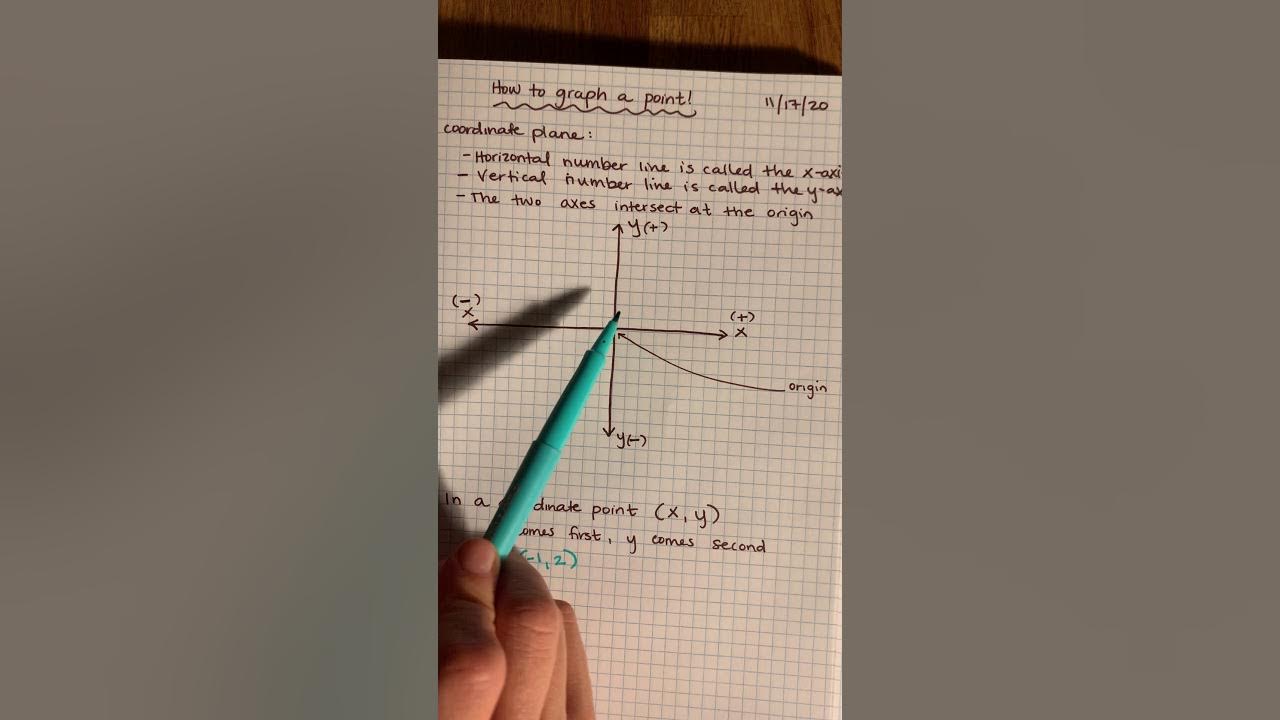 How to graph a point!
11/17/20
coordinate plane:
- Horizontal number line is called the x-axi
- Vertical number line is called the y-ax
- The two axes intersect at the origin
y(+)
(-)
x
(+)
x
origin
y(-)
In a dinate point (x, y)
omes first, y comes second
(-1, 2)